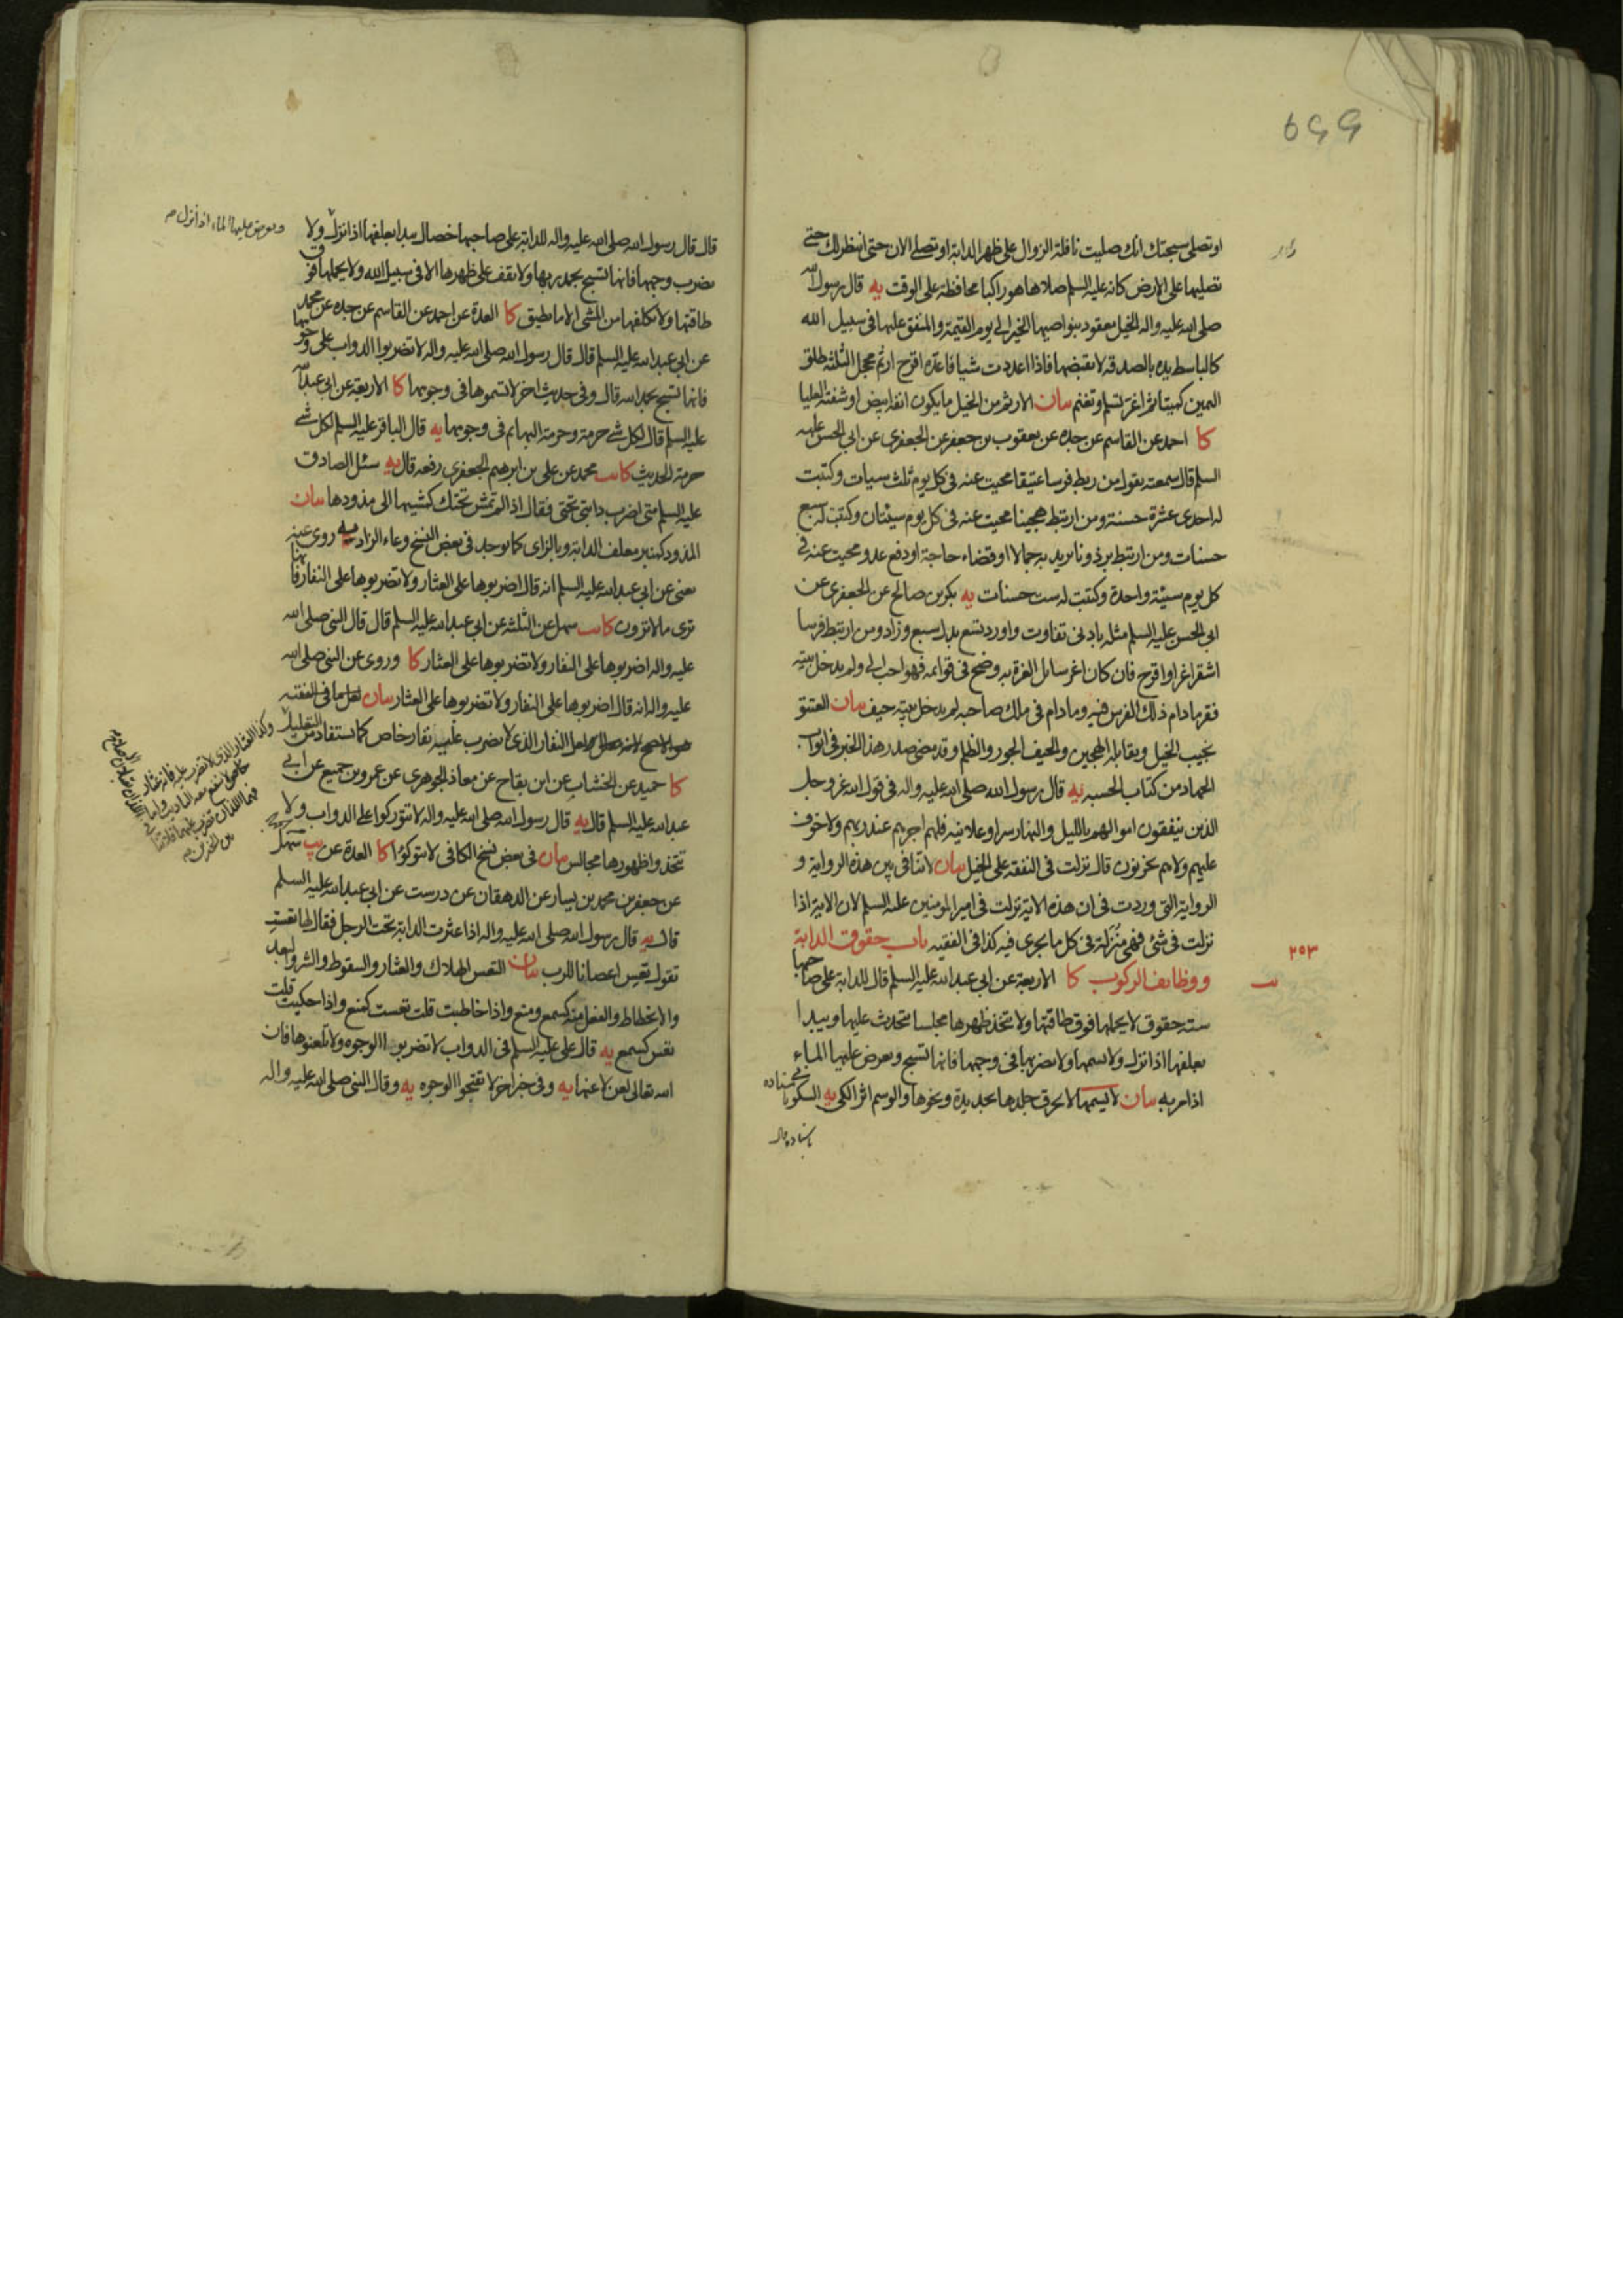 ٥٥٩
او تصلی سبحتك انك صليت نافلة الزوال على ظهر الدابة او تصلى الان حتى انتظرك حتى
تصليها على الارض كانه عليه السلم صلاها هو راكبا محافظة على الوقت يه قال رسول الله
صلى الله عليه واله الخيل معقود بنواصيها الخير الى يوم القيمة والمنفق عليها فى سبيل الله
كالباسط يده بالصدقة لا يقبضها فاذا اعددت شيا فاعده اقرح ارثم محجل الثلثة طلق
اليمين كميتا ثم اغر تسلم وتغنم بيان الارثم من الخيل ما يكون انفه ابيض او شفته العليا
كا احمد عن القاسم عن جده عن يعقوب بن جعفر عن الجعفرى عن ابى الحسن عليه
السلم قال سمعته يقول من ربط فرسا عتيقا محيت عنه فى كل يوم ثلث سيات وكتبت
له احدى عشرة حسنة ومن ارتبط هجينا محيت عنه فى كل يوم سيئتان وكتبت له سبع
حسنات ومن ارتبط برذونا يريد به جمالا او قضاء حاجة او دفع عدو محيت عنه فى
كل يوم سيئة واحدة وكتبت له ست حسنات يه بكر بن صالح عن الجعفرى عن
ابى الحسن عليه السلم مثله بادنى تفاوت واورد تسع بدل سبع وزاد ومن ارتبط فرسا
اشقر اغر او اقرح فان كان اغر سائل الغرة به وضح فى قوائمه فهو احب الى ولم يدخل بيته
فقر ما دام ذلك الفرس فيه وما دام فى ملك صاحبه لم يدخل بيته حيف بيان العتيق
نجيب الخيل ويقابله الهجين والحيف الجور والظلم وقد مضى صدر هذا الخبر فى ابواب
الجهاد من كتاب الحسبه يه قال رسول الله صلى الله عليه واله فى قول الله عز وجل
الذين ينفقون اموالهم بالليل والنهار سرا وعلانية فلهم اجرهم عند ربهم ولا خوف
عليهم ولا هم يحزنون قال نزلت فى النفقة على الخيل بيان لا تنافى بين هذه الرواية و
الرواية التى وردت فى ان هذه الاية نزلت فى امير المؤمنين عليه السلم لان الاية اذا
نزلت فى شئ فهى منزلة فى كل ما يجرى فيه كذا فى الفقيه باب حقوق الدابة
٢٥٣
ووظائف الركوب كا الاربعة عن ابى عبد الله عليه السلم قال للدابة على صاحبها
ستة حقوق لا يحملها فوق طاقتها ولا يتخذ ظهرها مجلسا يتحدث عليها ويبدا
بعلفها اذا نزل ولا يسمها ولا يضربها فى وجهها فانها تسبح ويعرض عليها الماء
اذا مر به بيان لا يسمها لا يحرق جلدها بحديدة ونحوها والوسم اثر الكى يه السكونى باسناده
باسناده قال
قال قال رسول الله صلى الله عليه واله للدابة على صاحبها خصال يبدا بعلفها اذا نزل ولا
ويعرض عليها الماء اذا نزل م
يضرب وجهها فانها تسبح بحمد ربها ولا يقف على ظهرها الا فى سبيل الله ولا يحملها فوق
طاقتها ولا يكلفها من المشى الا ما تطيق كا العدة عن احمد عن القاسم عن جده عن محمد
عن ابى عبد الله عليه السلم قال قال رسول الله صلى الله عليه واله لا تضربوا الدواب على وجوهها
فانها تسبح بحمد الله قال وفى حديث اخر لا تسموها فى وجوهها كا الاربعة عن ابى عبد الله
عليه السلم قال لكل شئ حرمة وحرمة البهائم فى وجوهها يه قال الباقر عليه السلم لكل شئ
حرمة الحديث كا يب محمد عن على بن ابرهيم الجعفرى رفعه قال يه سئل الصادق
عليه السلم متى اضرب دابتى تحتى فقال اذا لم تمش تحتك كمشيها الى مذودها بيان
المذود كمنبر معلف الدابة وبالزاى كما يوجد فى بعض النسخ وعاء الزاد يه روى عنه
يعنى عن ابى عبد الله عليه السلم انه قال اضربوها على العثار ولا تضربوها على النفار فانها
ترى ما لا ترون كا يب سهل عن الثلثة عن ابى عبد الله عليه السلم قال قال النبى صلى الله
عليه واله اضربوها على النفار ولا تضربوها على العثار كا وروى عن النبى صلى الله
عليه واله انه قال اضربوها على النفار ولا تضربوها على العثار بيان لعل ما فى الفقيه
هو الاصح لعل النفار الذى لا يضرب عليه نفار خاص كما يستفاد من التعليل
وكذا العثار الذى لا تضرب عليه فانه عثار
كا حميد عن الخشاب عن ابن بقاح عن معاذ الجوهرى عن عمرو بن جميع عن ابى
عبد الله عليه السلم قال يه قال رسول الله صلى الله عليه واله لا تتوركوا على الدواب ولا
تتخذوا ظهورها مجالس بيان فى بعض نسخ الكافى لا تتوكؤا كا العدة عن يب سهل
عن جعفر بن محمد بن يسار عن الدهقان عن درست عن ابى عبد الله عليه السلم
قال يه قال رسول الله صلى الله عليه واله اذا عثرت الدابة تحت الرجل فقال لها تعست
تقول تعس اعصانا للرب بيان التعس الهلاك والعثار والسقوط والشر والبعد
والانحطاط والفعل منه كسمع ومنع واذا خاطبت قلت تعست كمنع واذا حكيت قلت
تعس كسمع يه قال على عليه السلم فى الدواب لا تضربوا الوجوه ولا تلعنوها فان
الله تعالى لعن لاعنها يه وفى خبر اخر لا تقبحوا الوجوه يه وقال النبى صلى الله عليه واله